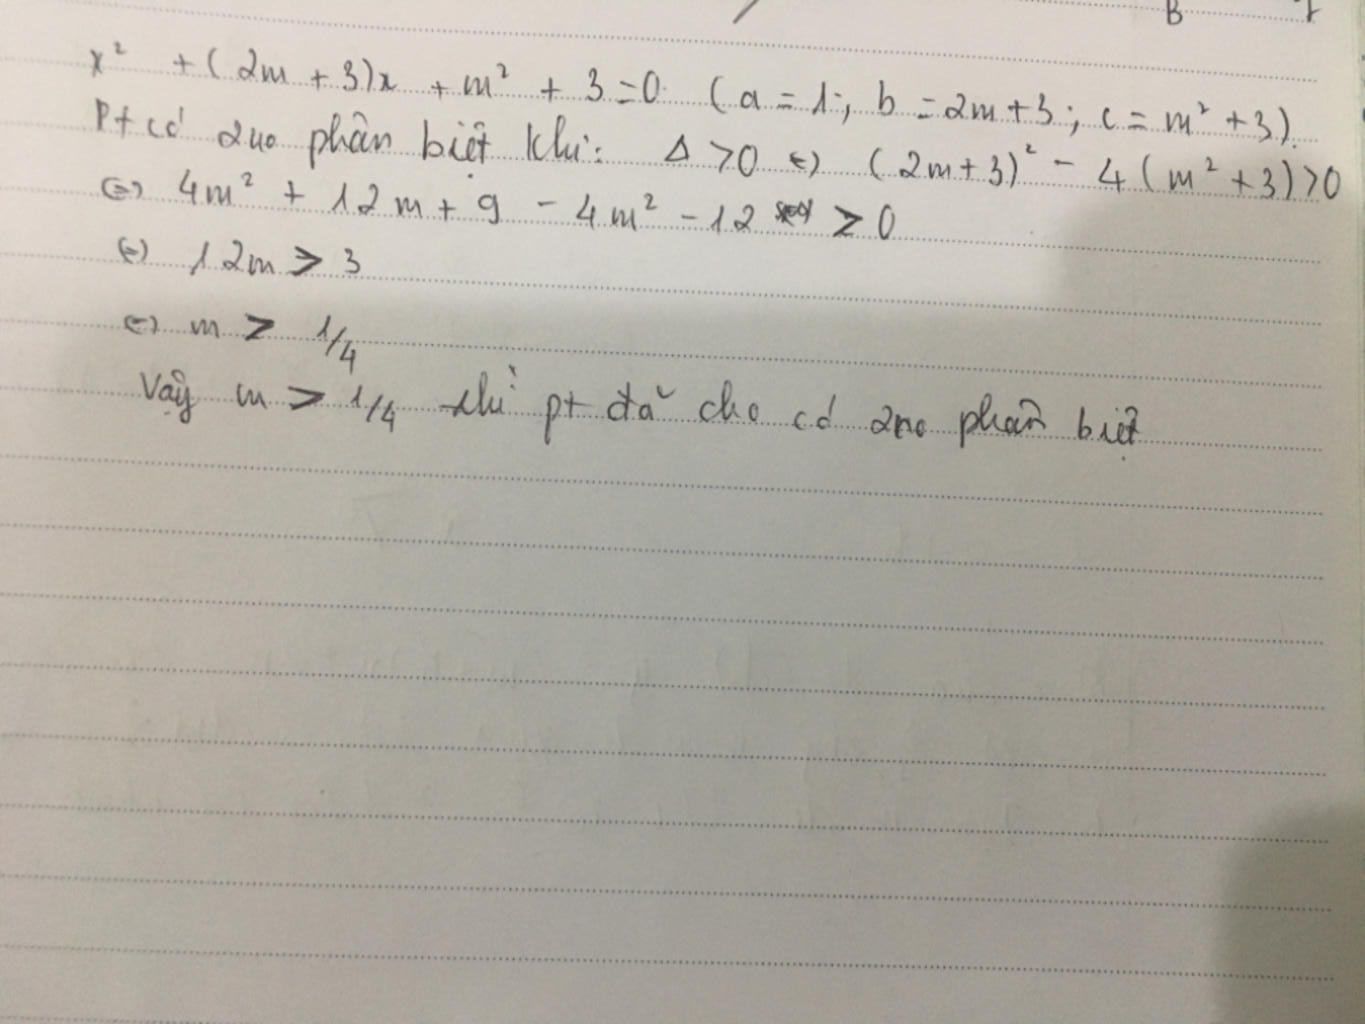 B r
x² + (2m + 3)x + m² + 3 = 0 (a = 1; b = 2m + 3; c = m² + 3)
Pt có 2no phân biệt khi: Δ > 0 ⇔ (2m + 3)² - 4(m² + 3) > 0
⇔ 4m² + 12m + 9 - 4m² - 12 > 0
⇔ 12m > 3
⇔ m > 1/4
Vậy m > 1/4 thì pt đã cho có 2no phân biệt